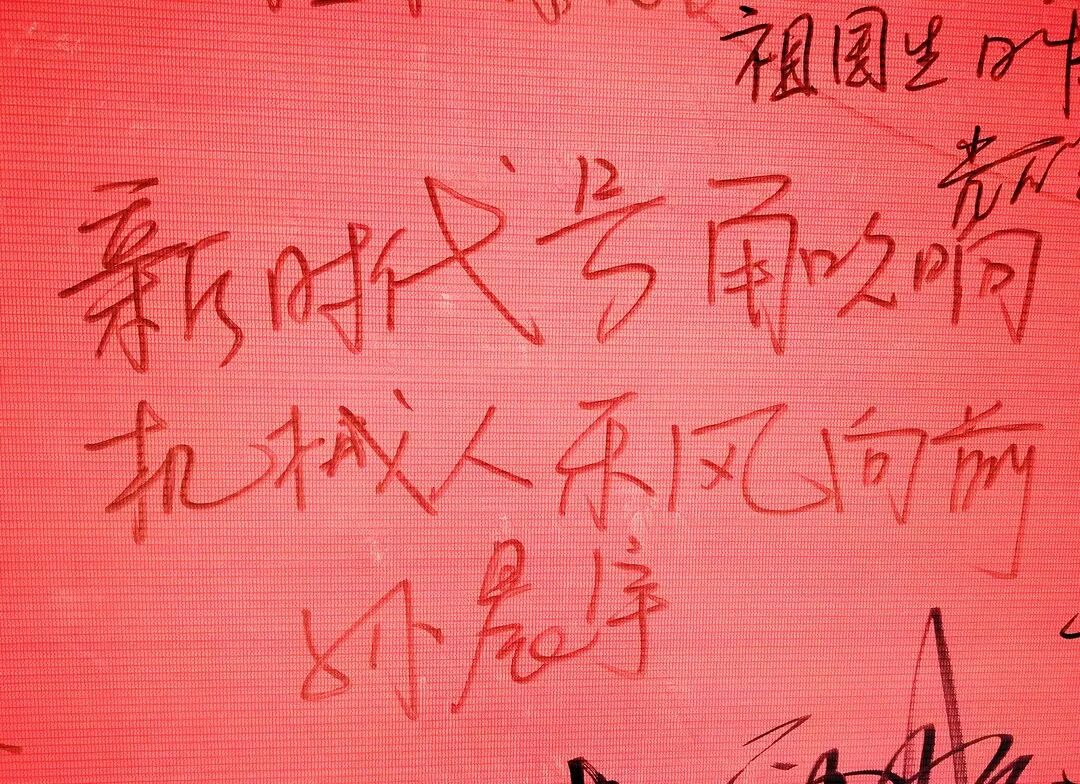 祖国生日
新时代号角吹响
机械人乘风向前
孙晨宇